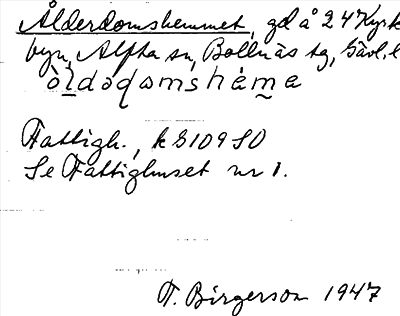 Ålderdomshemmet, gd å 24 Kyrk
byn, Alfta sn, Bollnäs tg, Gävl. l
òldoḍomshéme
Fattigh., k G109 SO
Se Fattighuset nr 1.
F. Birgerson 1947